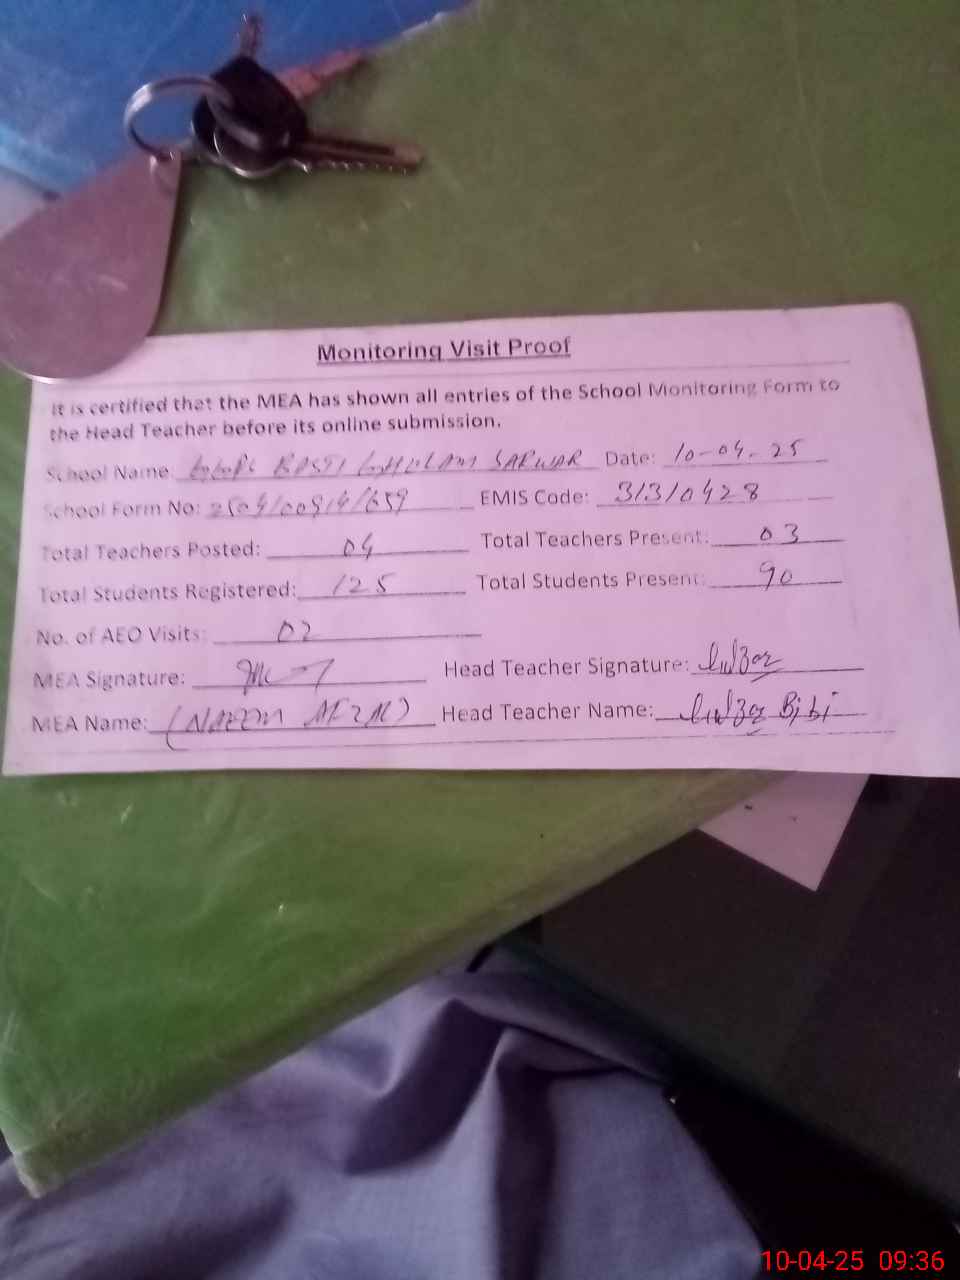 Monitoring Visit Proof
It is certified that the MEA has shown all entries of the School Monitoring Form to
the Head Teacher before its online submission.
School Name: GGPS BASTI GHULAM SARWAR Date: 10-04-25
School Form No: EMIS Code: 31310428
Total Teachers Posted: 04 Total Teachers Present: 03
Total Students Registered: 125 Total Students Present: 90
No. of AEO Visits: 02
MEA Signature: Head Teacher Signature:
MEA Name: (NAEEM AFZAL) Head Teacher Name: Bibi
10-04-25 09:36